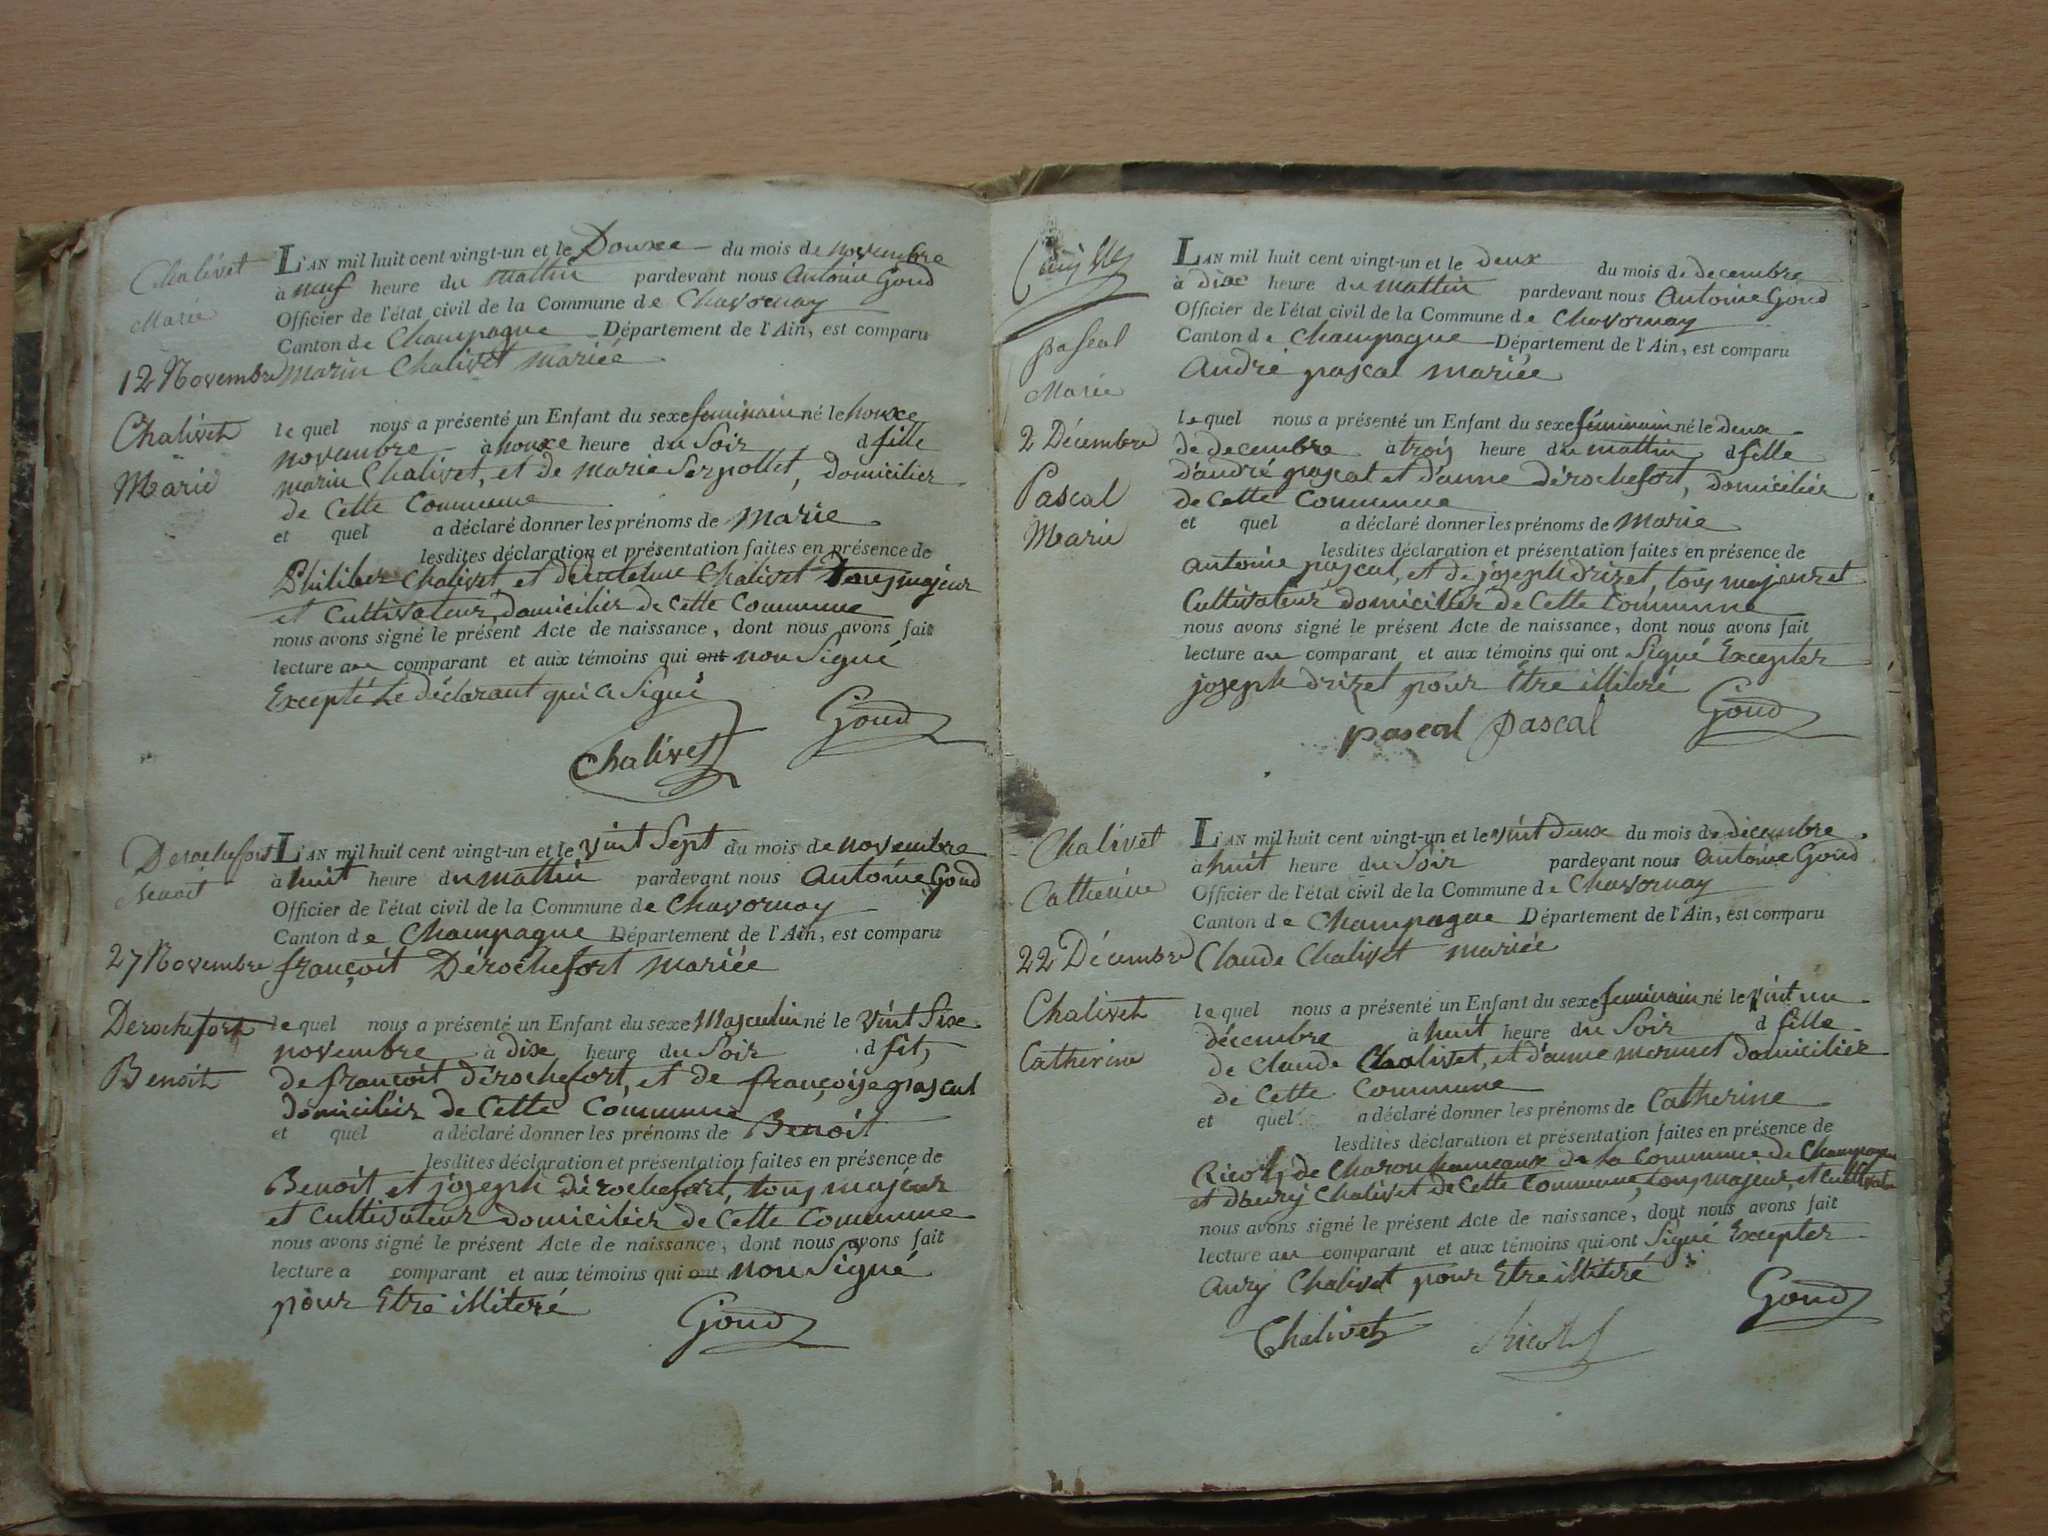 Chalivet
Marie
12 Novembre
Chalivet
Marie
L'AN mil huit cent vingt-un et le Douxe du mois de novembre
à neuf heure du mattin pardevant nous Antoine Goud
Officier de l'état civil de la Commune de Chavornay
Canton de Champagne Département de l'Ain, est comparu
marin Chalivet mariée
le quel nous a présenté un Enfant du sexe feminain né le honxe
novembre à honxe heure du Soir d fille
marin Chalivet, et de marie Serpollet, domicilier
de Cette Commune
et quel a déclaré donner les prénoms de marie
lesdites déclaration et présentation faites en présence de
Philiber Chalivet, et Chalivet Tous majeur
et Cultivateur, domicilier de Cette Commune
nous avons signé le présent Acte de naissance, dont nous avons fait
lecture au comparant et aux témoins qui ont non Signé
Excepté Le déclarant qui a Signé
Chalivet Goud
Derochefort
Benoit
27 Novembre
Derochefort
Benoit
L'AN mil huit cent vingt-un et le vint Sept du mois de novembre
à huit heure du mattin pardevant nous Antoine Goud
Officier de l'état civil de la Commune de Chavornay
Canton de Champagne Département de l'Ain, est comparu
françoit Dérochefort mariée
le quel nous a présenté un Enfant du sexe Masculin né le vint Sixe
novembre à dixe heure du Soir d fit,
de françoit dérochefort, et de françoise pascal
domicilier de Cette Commune
et quel a déclaré donner les prénoms de Benoit
lesdites déclaration et présentation faites en présence de
Benoit et joseph dérochefort, tous majeur
et Cultivateur domicilier de Cette Commune
nous avons signé le présent Acte de naissance, dont nous avons fait
lecture a comparant et aux témoins qui ont non Signé
pour Etre illiteré
Goud
pascal
Marie
2 Décembre
Pascal
Marie
L'AN mil huit cent vingt-un et le deux du mois de decembre
à dixe heure du mattin pardevant nous Antoine Goud
Officier de l'état civil de la Commune de Chavornay
Canton de Champagne Département de l'Ain, est comparu
André pascal mariée
le quel nous a présenté un Enfant du sexe féminain né le deux
de decembre à trois heure du mattin d fille
d'andré pascal et d'anne dérochefort, domicilier
de Cette Commune
et quel a déclaré donner les prénoms de marie
lesdites déclaration et présentation faites en présence de
antoine pascal, et de joseph drizet, tous majeur et
Cultivateur domicilier de Cette Commune
nous avons signé le présent Acte de naissance, dont nous avons fait
lecture au comparant et aux témoins qui ont Signé Excepter
joseph drizet pour Etre illiteré
pascal pascal Goud
Chalivet
Catherine
22 Décembre
Chalivet
Catherine
L'AN mil huit cent vingt-un et le vint deux du mois de decembre
à huit heure du Soir pardevant nous Antoine Goud
Officier de l'état civil de la Commune de Chavornay
Canton de Champagne Département de l'Ain, est comparu
Claude Chalivet mariée
le quel nous a présenté un Enfant du sexe feminain né le vint un
décembre à huit heure du Soir d fille
de Claude Chalivet, et d'anne mermet domicilier
de Cette Commune
et quel a déclaré donner les prénoms de Catherine
lesdites déclaration et présentation faites en présence de
de Charon hameaux de la Commune de Champagne
et d'aury Chalivet de Cette Commune, tous majeur, et Cultivateur
nous avons signé le présent Acte de naissance, dont nous avons fait
lecture au comparant et aux témoins qui ont Signé Excepter
aury Chalivet pour Etre illiteré
Chalivet Goud